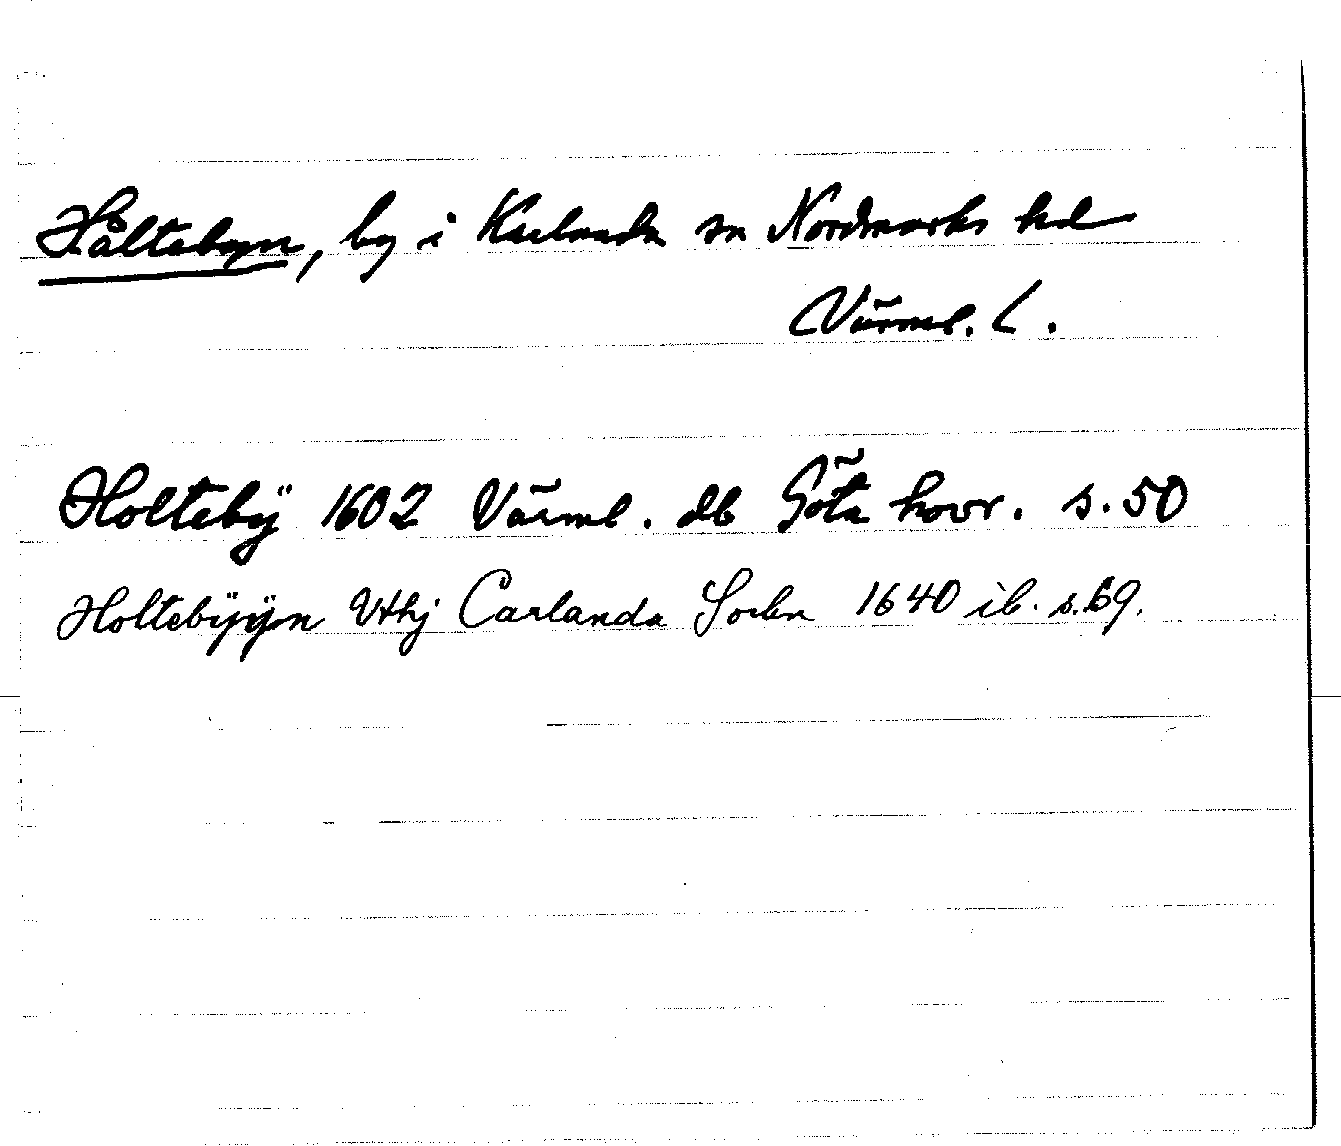 Håltebyn, by i Karlanda sn Nordmarks hd
Värml. L.
Holtebÿ 1602 Värml. db Göta hovr. s. 50
Holtebÿÿn Vthj Carlanda Sochn 1640 ib. s. 69.